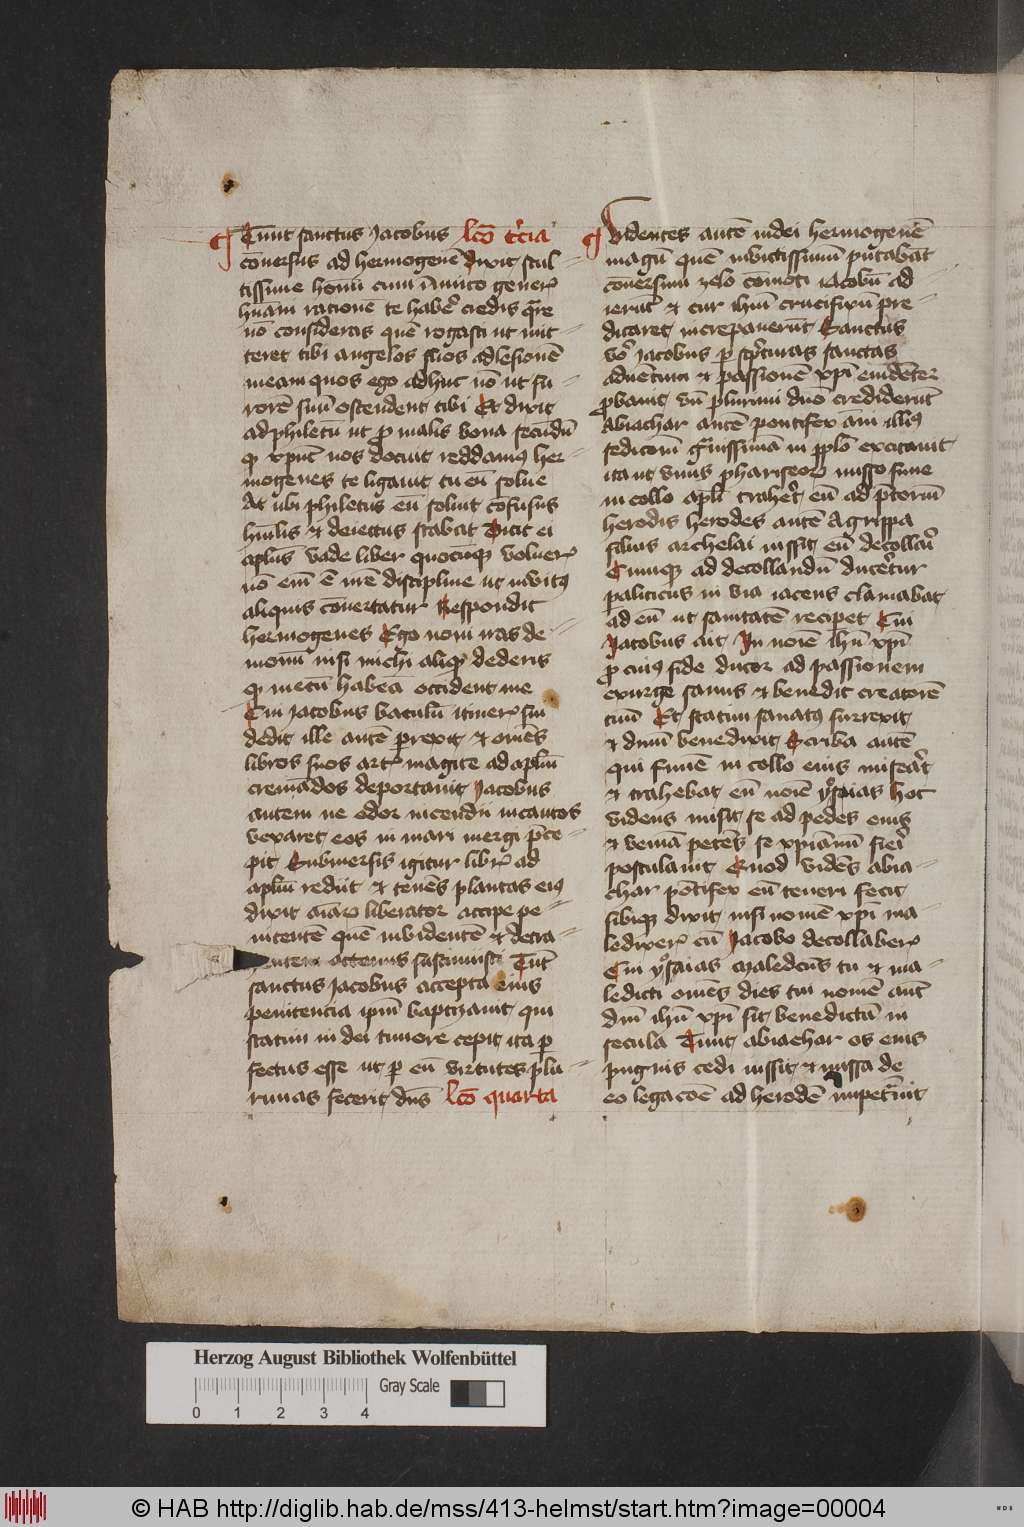 Tunc sanctus Jacobus lcō t'cia
cōuersus ad hermogenē dixit stul=
tissime homī cum īimico gener
hūani racionē te haber credis q̄re
nō consideras quē rogasti ut mit=
teret tibi angelos suos ad lesionē
meam quos ego adhuc nō ut fu=
rorē suū ostendent tibi Et dixit
ad philetū ut pro malis bona secundū
xpūc nos docuit reddamꝰ her=
mogenes te ligauit tu eū solue
At ubi philetus eū soluit cōfusus
hūilis et deiectus stabat Dicit ei
aplus vade liber quocūqꝫ voluer
nō em̄ ē nr̄e discipline ut inuitꝰ
aliquis cōuertatur Respondit
hermogenes Ego noui iras de=
monū nisi michi aliqͥd dederis
qͥd mecū habeā occident me
Cui Jacobus baculū itiner sui
dedit ille autē perrexit et omēs
libros suos art magice ad aplūm
cremādos deportauit Jacobus
autem ne odor incendii incautos
vexaret eos in mari mergi p̄ce=
pit Submersis igitur libr ad
aplūm rediit et tenēs plantas eiꝰ
dixit aīaꝝ liberator accipe pe=
nitentē quē inuidentē et detra=
hentem actenus sustinuisti Tūc
sanctus Jacobus accepta eius
penitencia ip̄m baptizauit qui
statim in dei timore cepit ita per
fectus esse ut per eū virtutes plu=
rimas fecerit dn̄s lcō quarta
Videntes autē iudei hermogenē
magū quē inuictissimū putabāt
cōuersum zelo cōmoti iacobū ad
ierūt et cur ihm̄ crucifixū pre=
dicaret increpauerūt Sanctus
vo Jacobus per scp̄turas sanctas
aduentum et passionē xpī euidēter
probauit vn̄ plurimi dnō crediderūt
Abiachar autē pontifex anī illiꝰ
sedicōm grauissimā in pplō excitauit
ita ut vnus phariseoꝝ misso fune
in collo apli traher eū ad p̄toriū
herodis herodes autē Agrippa
filius archelai iussit eū decollari
Cumqꝫ ad decollandū ducertur
paliticus in via iacens clamabat
ad eū ut sanitatē reciperet Cui
Jacobus ait In noīe ihū xpī
pro cuiꝰ fide ducor ad passionem
exurge sanus et benedic creatorē
tuū Et statim sanatꝰ surrexit
et dnm̄ benedixit Scriba autē
qui funē in collo eius miserat
et trahebat eū noīe yosaias hoc
videns misit se ad pedes eius
et veniā petēs se xpianū fieri
postulauit Quod vidēs abia=
char pōtifex eū teneri fecit
sibiqꝫ dixit nisi nomē xpī ma=
ledixer cū Jacobo decollaber
Cui yosaias maledcūs tu et ma=
ledicti omēs dies tui nomē autē
dnī ihū xpī sit benedictū in
secula Tunc abiachar os eius
pugnis cedi iussit et missa de
eo legacōe ad herodē impetrauit
Herzog August Bibliothek Wolfenbüttel
Gray Scale
0 1 2 3 4
© HAB http://diglib.hab.de/mss/413-helmst/start.htm?image=00004